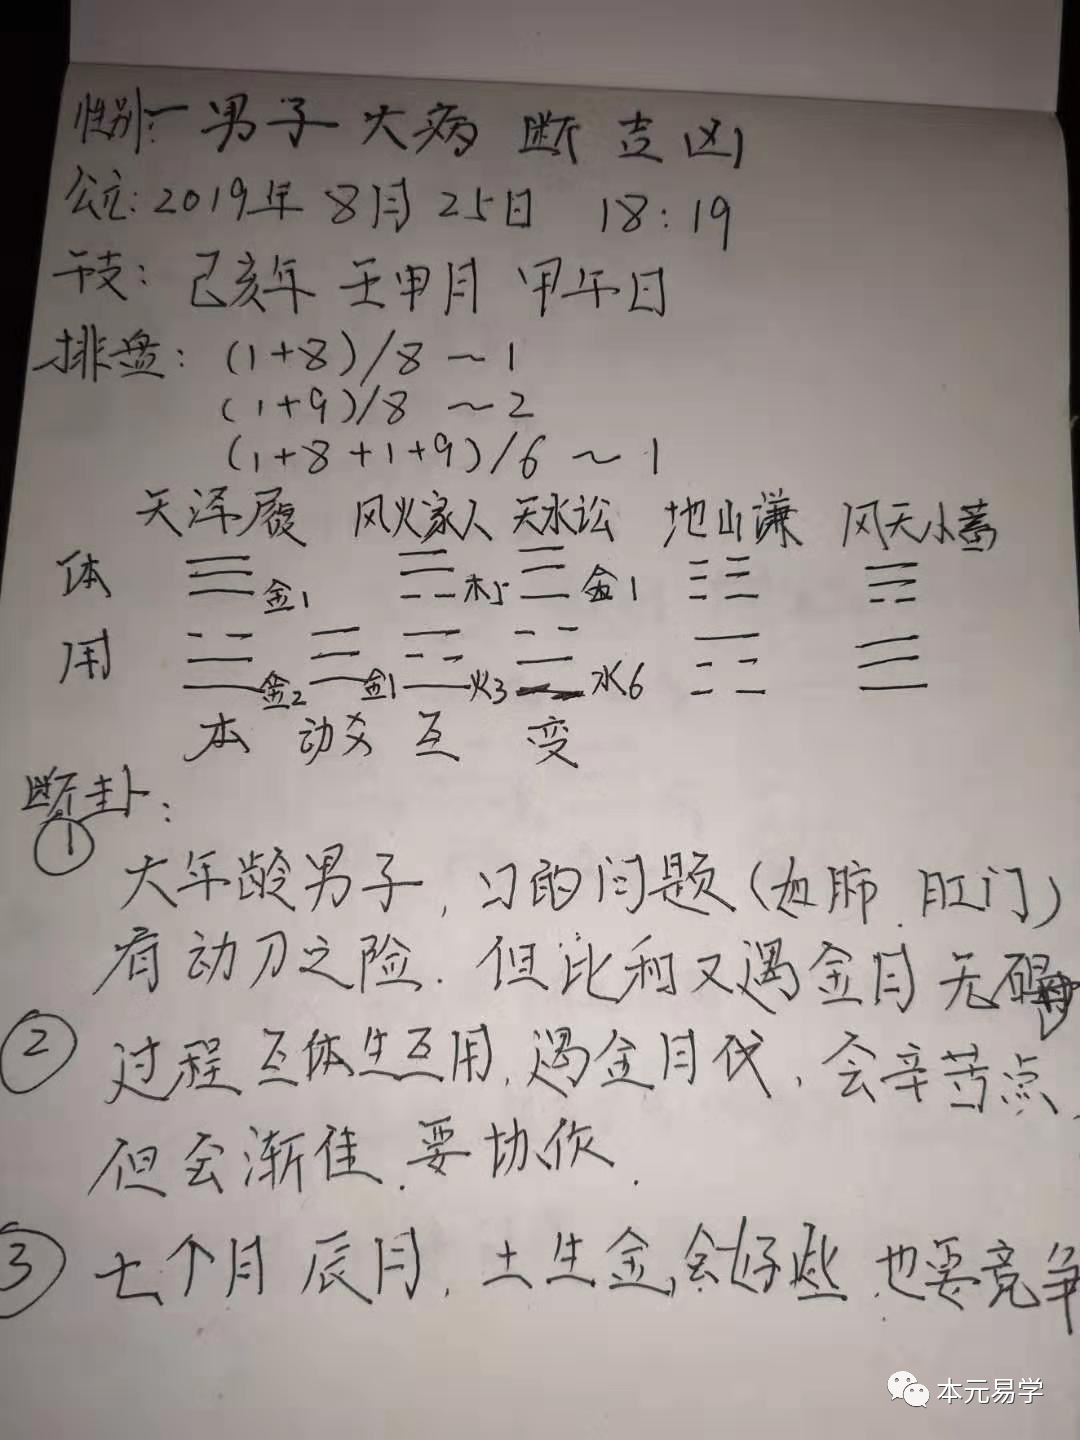 性别:一男子 大病 断 吉凶
公立:2019年 8月 25日 18:19
干支: 己亥年 壬申月 甲午日
排盘: (1+8)/8 ~ 1
(1+9)/8 ~ 2
(1+8+1+9)/6 ~ 1
天泽履 风火家人 天水讼 地山谦 风天小蓄
体 金1 木5 金1
用 金2 金1 火3 水6
本 动爻 互 变
断卦:
① 大年龄男子, 口的问题(如肺.肛门)
有动刀之险. 但比和又遇金月无碍
② 过程 互体生互用, 遇金月伐, 会辛苦点,
但会渐佳. 要协作.
③ 七个月 辰月, 土生金,会好些.也要竞争
本元易学